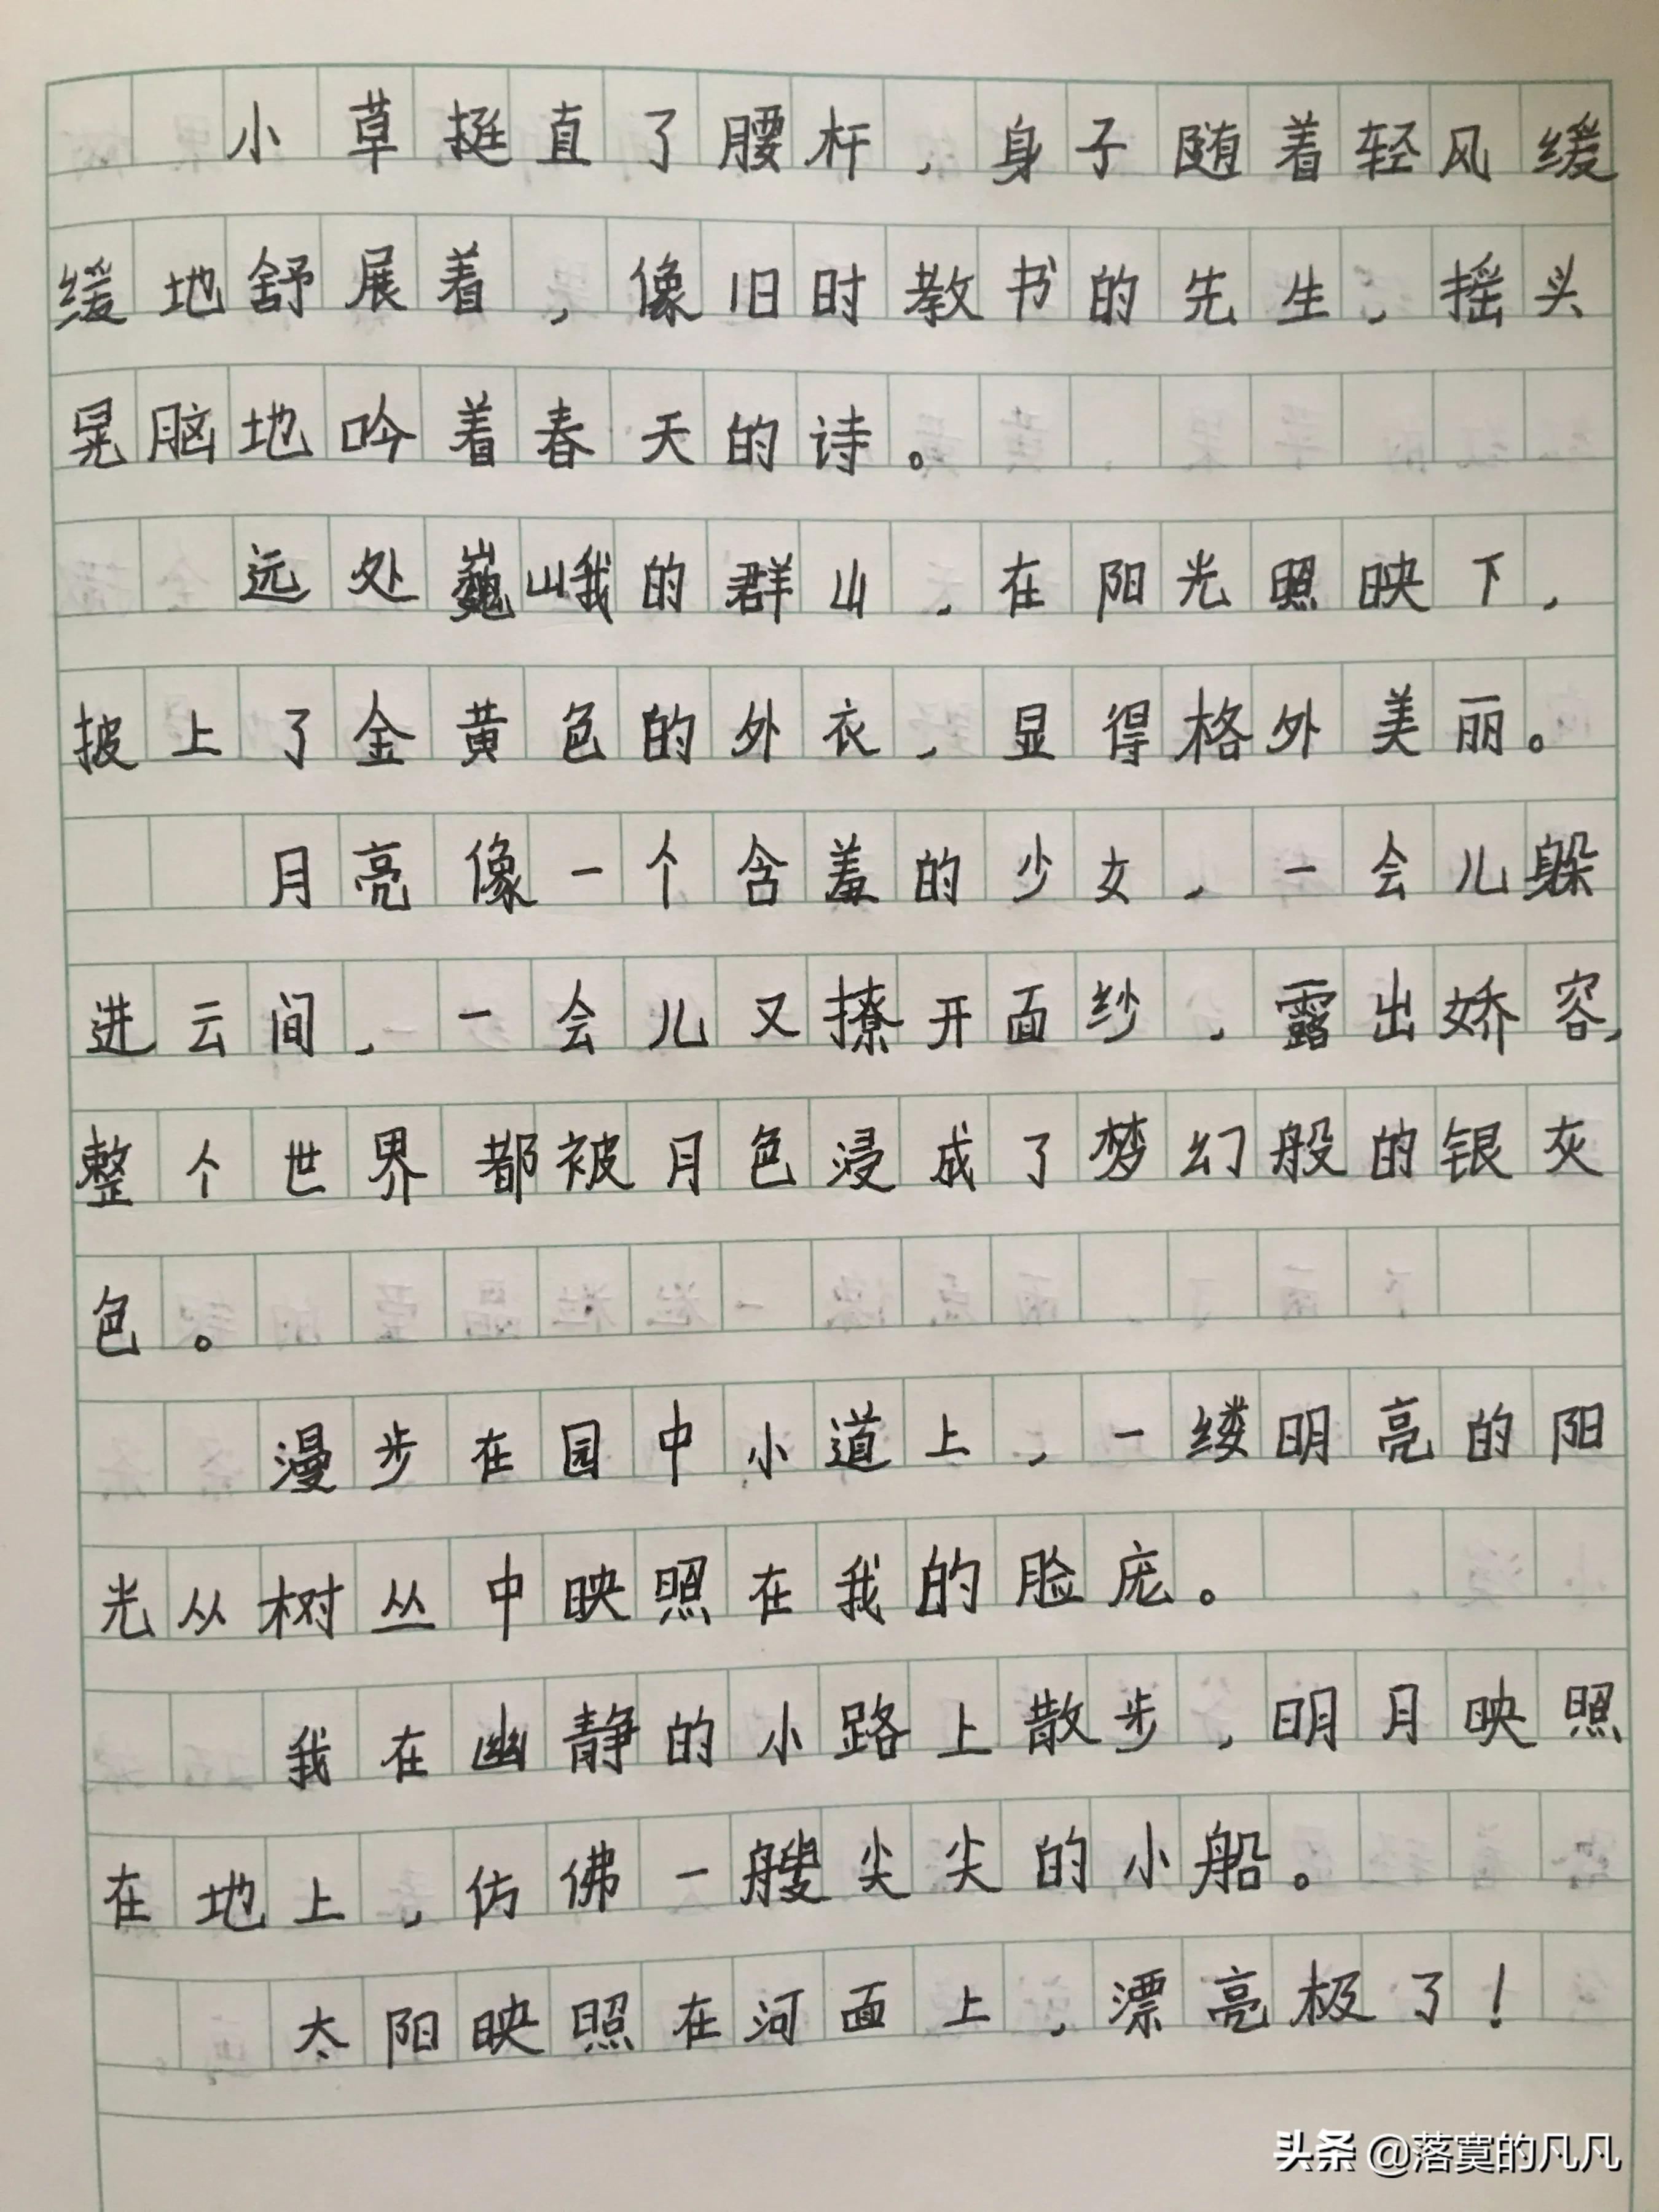 小草挺直了腰杆,身子随着轻风缓
缓地舒展着,像旧时教书的先生,摇头
晃脑地吟着春天的诗。
远处巍峨的群山,在阳光照映下,
披上了金黄色的外衣,显得格外美丽。
月亮像一个含羞的少女,一会儿躲
进云间,一会儿又撩开面纱,露出娇容,
整个世界都被月色浸成了梦幻般的银灰
色。
漫步在园中小道上,一缕明亮的阳
光从树丛中映照在我的脸庞。
我在幽静的小路上散步,明月映照
在地上,仿佛一艘尖尖的小船。
太阳映照在河面上,漂亮极了!
头条 @落寞的凡凡